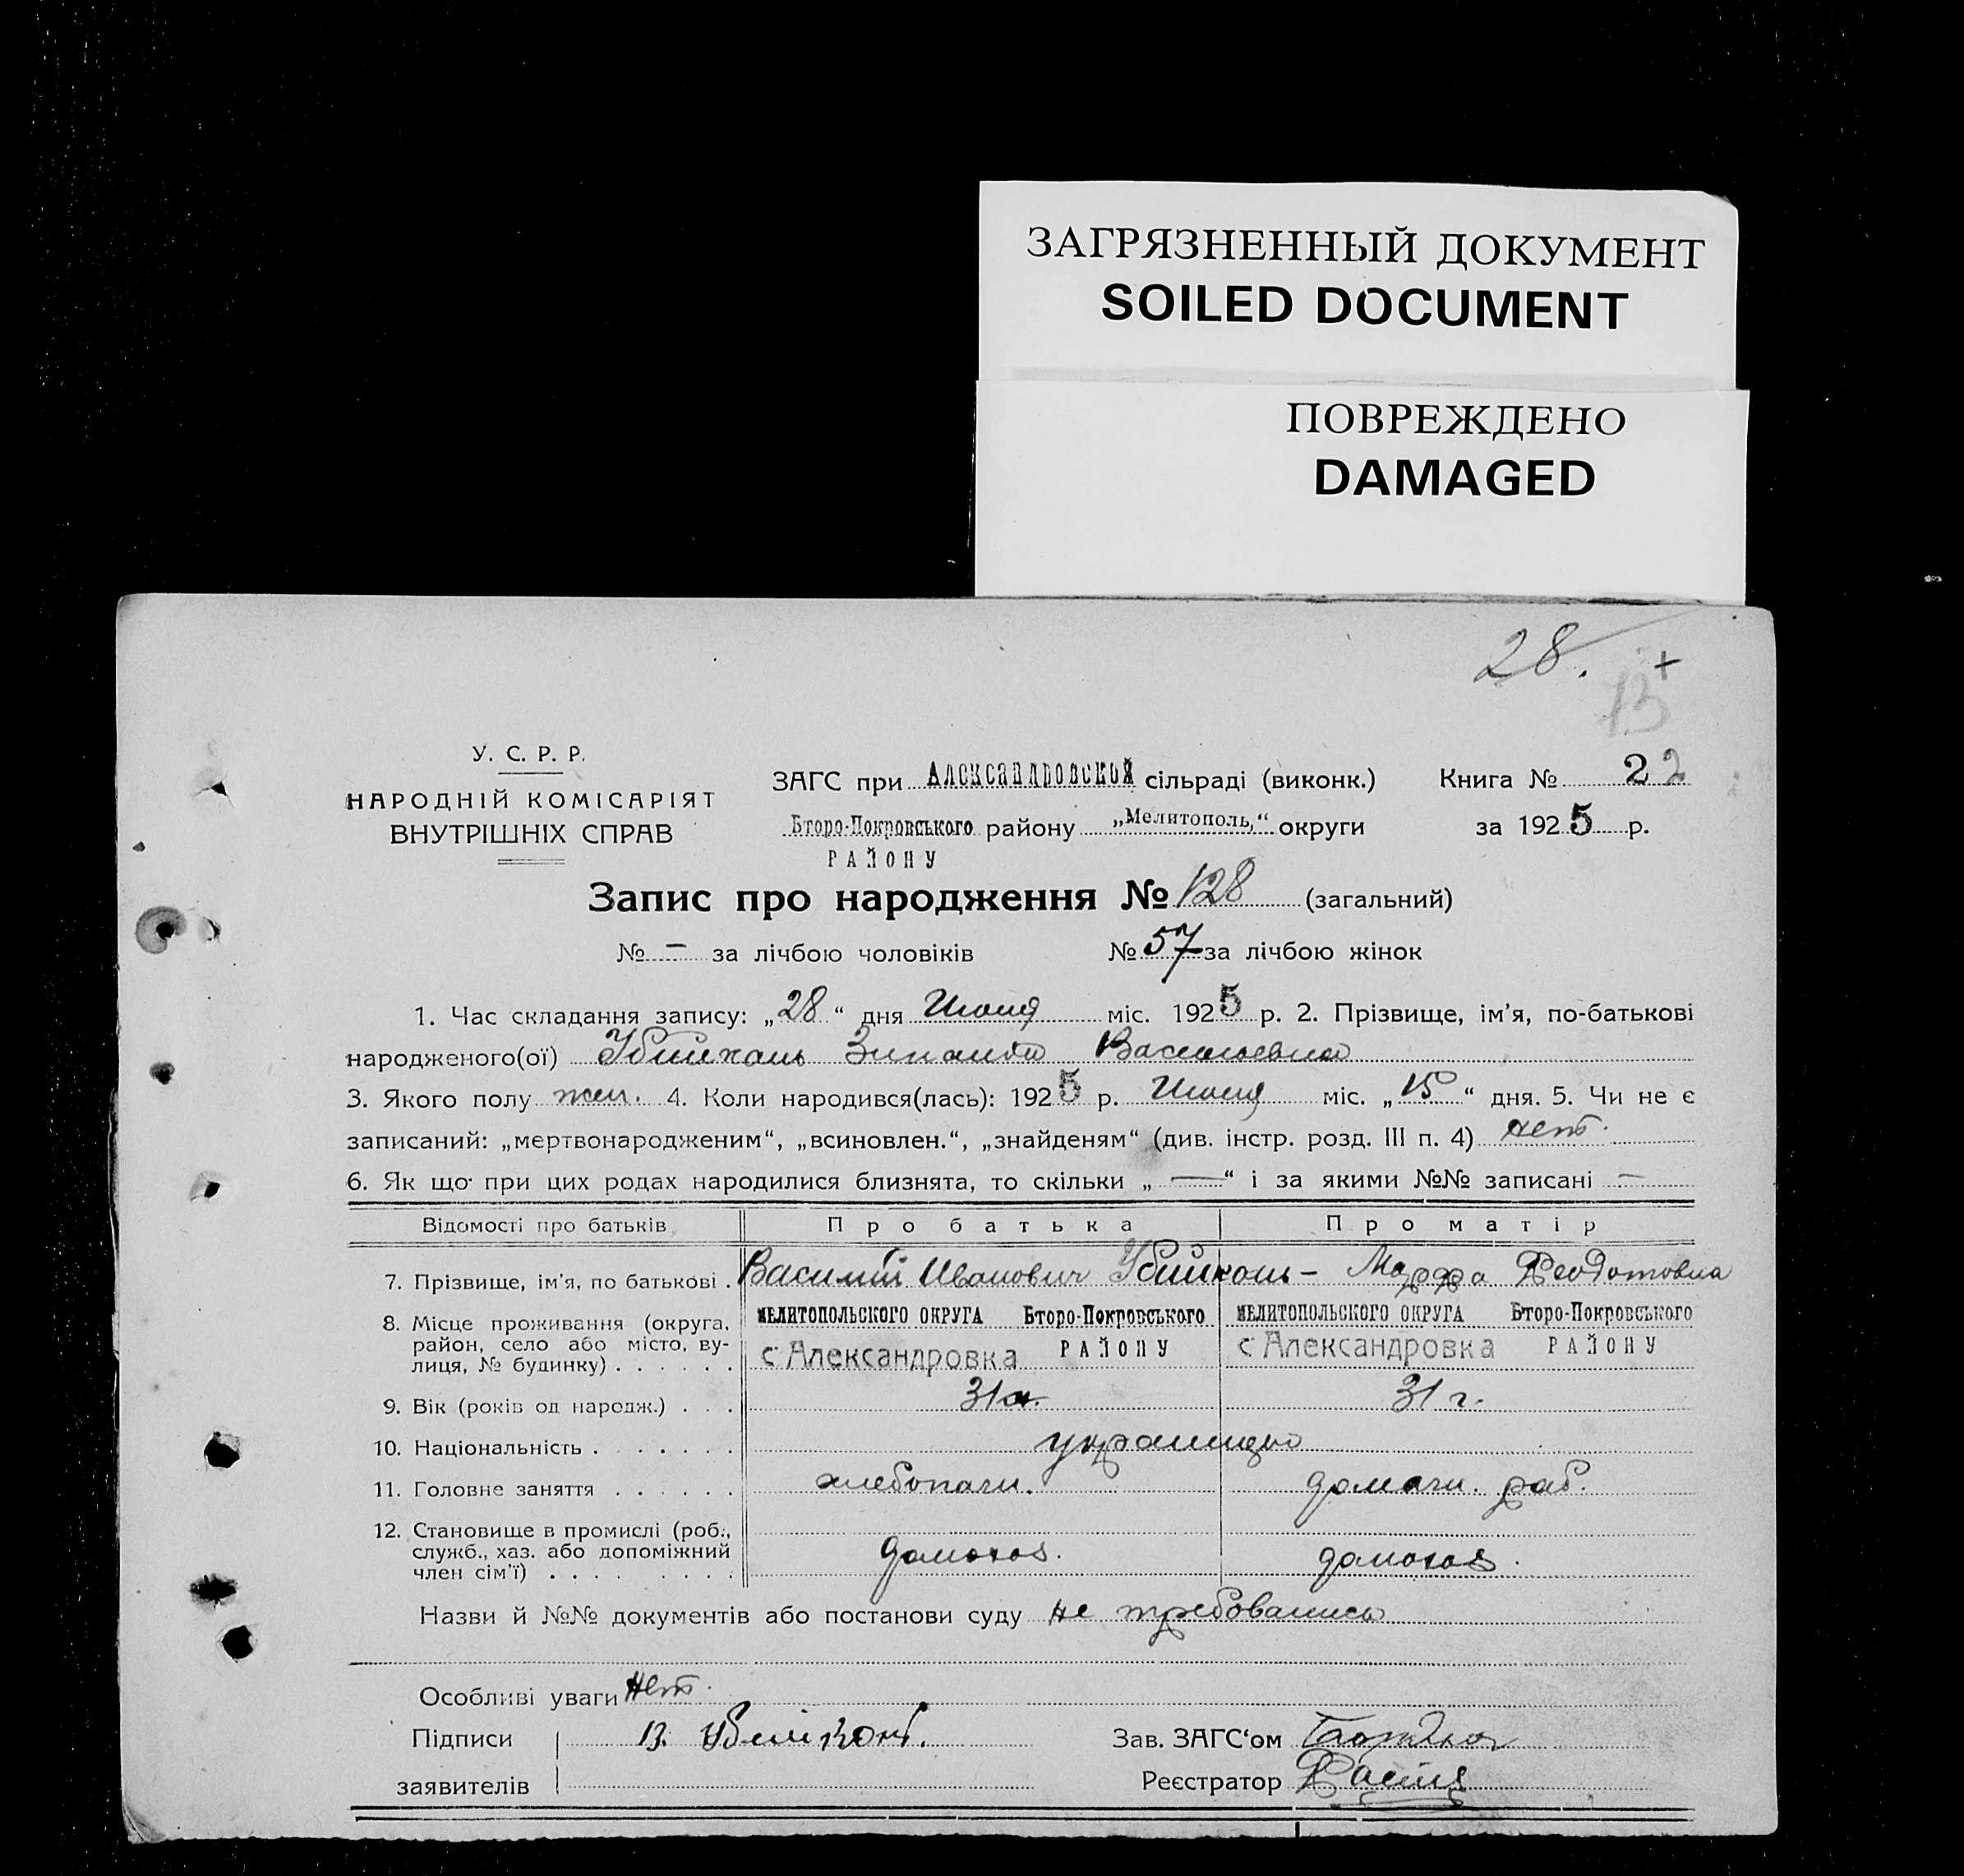 ЗАГРЯЗНЕННЫЙ ДОКУМЕНТ
SOILED DOCUMENT
ПОВРЕЖДЕНО
DAMAGED
28. +
13
У. С. Р. Р.
НАРОДНІЙ КОМІСАРІЯТ
ВНУТРІШНІХ СПРАВ
ЗАГС при Александровской сільраді (виконк.) Книга № 22
Второ-Покровського району „Мелитополь„“ округи за 1925 р.
РАЙОНУ
Запис про народження № 128 (загальний)
№ – за лічбою чоловіків № 57 за лічбою жінок
1. Час складання запису: „28“ дня Июня міс. 1925 р. 2. Прізвище, ім'я, по-батькові
народженого(ої) Убийконь Зинаида Васильевна
3. Якого полу жен. 4. Коли народився(лась): 1925 р. Июня міс. „15“ дня. 5. Чи не є
записаний: „мертвонародженим“, „всиновлен.“, „знайденям“ (див. інстр. розд. III п. 4) нет.
6. Як що при цих родах народилися близнята, то скільки „ — “ і за якими №№ записані —
Відомості про батьків Про батька Про матір
7. Прізвище, ім'я, по батькові . Василий Иванович Убийконь – Марфа Феодотовна
8. Місце проживання (округа, МЕЛИТОПОЛЬСКОГО ОКРУГА Второ-Покровського МЕЛИТОПОЛЬСКОГО ОКРУГА Второ-Покровського
район, село або місто, ву- с Александровка РАЙОНУ с Александровка РАЙОНУ
лиця, № будинку) . . . . . .
9. Вік (років од народж.) . . . 31 г. 31 г.
10. Національність . . . . . . . украинцы
11. Головне заняття . . . . . . хлебопаш. домашн. раб.
12. Становище в промислі (роб.,
служб., хаз. або допоміжний домохоз. домохоз.
член сім'ї) . . . . . . . . .
Назви й №№ документів або постанови суду не требовались
Особливі уваги нет.
Підписи В. Убийконь. Зав. ЗАГС'ом
заявителів Реєстратор